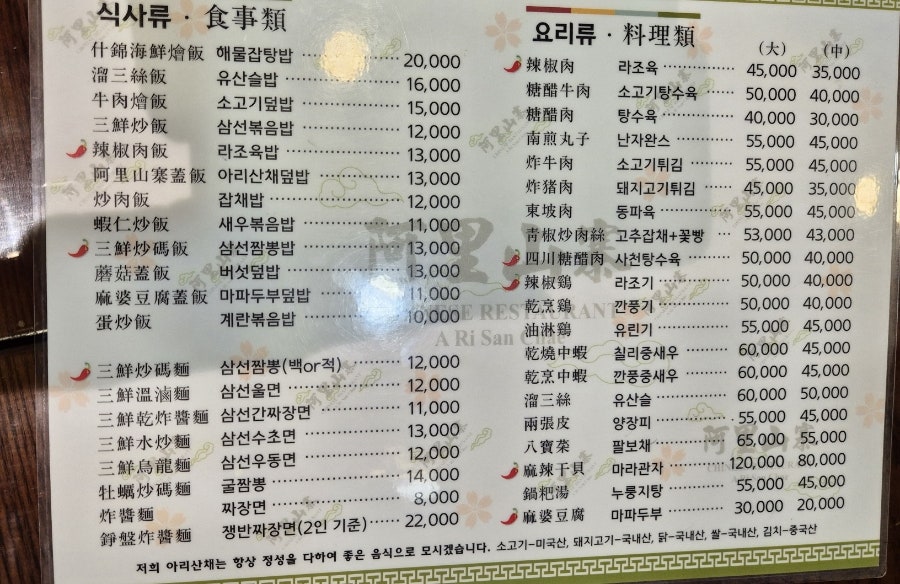 식사류 · 食事類
什錦海鮮燴飯 해물잡탕밥 20,000
溜三絲飯 유산슬밥 16,000
牛肉燴飯 소고기덮밥 15,000
三鮮炒飯 삼선볶음밥 12,000
辣椒肉飯 라조육밥 13,000
阿里山寨蓋飯 아리산채덮밥 13,000
炒肉飯 잡채밥 12,000
蝦仁炒飯 새우볶음밥 11,000
三鮮炒碼飯 삼선짬뽕밥 13,000
蘑菇蓋飯 버섯덮밥 13,000
麻婆豆腐蓋飯 마파두부덮밥 11,000
蛋炒飯 계란볶음밥 10,000
三鮮炒碼麵 삼선짬뽕(백or적) 12,000
三鮮溫滷麵 삼선울면 12,000
三鮮乾炸醬麵 삼선간짜장면 11,000
三鮮水炒麵 삼선수초면 13,000
三鮮烏龍麵 삼선우동면 12,000
牡蠣炒碼麵 굴짬뽕 14,000
炸醬麵 짜장면 8,000
錚盤炸醬麵 쟁반짜장면(2인 기준) 22,000
요리류 · 料理類
(大) (中)
辣椒肉 라조육 45,000 35,000
糖醋牛肉 소고기탕수육 50,000 40,000
糖醋肉 탕수육 40,000 30,000
南煎丸子 난자완스 55,000 45,000
炸牛肉 소고기튀김 55,000 45,000
炸猪肉 돼지고기튀김 45,000 35,000
東坡肉 동파육 55,000 45,000
靑椒炒肉絲 고추잡채+꽃빵 53,000 43,000
四川糖醋肉 사천탕수육 50,000 40,000
辣椒鷄 라조기 50,000 40,000
乾烹鷄 깐풍기 50,000 40,000
油淋鷄 유린기 55,000 45,000
乾燒中蝦 칠리중새우 60,000 45,000
乾烹中蝦 깐풍중새우 60,000 45,000
溜三絲 유산슬 60,000 50,000
兩張皮 양장피 55,000 45,000
八寶菜 팔보채 65,000 55,000
麻辣干貝 마라관자 120,000 80,000
鍋粑湯 누룽지탕 55,000 45,000
麻婆豆腐 마파두부 30,000 20,000
阿里山寨
A Ri San Chae
저희 아리산채는 항상 정성을 다하여 좋은 음식으로 모시겠습니다. 소고기-미국산, 돼지고기-국내산, 닭-국내산, 쌀-국내산, 김치-중국산